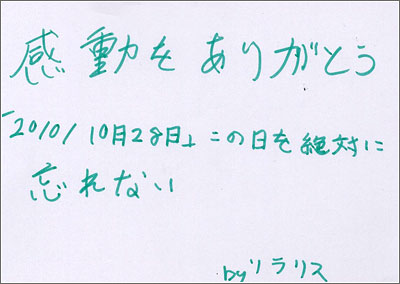 感動をありがとう
「2010/10月28日」この日を絶対に
忘れない
byリラリス